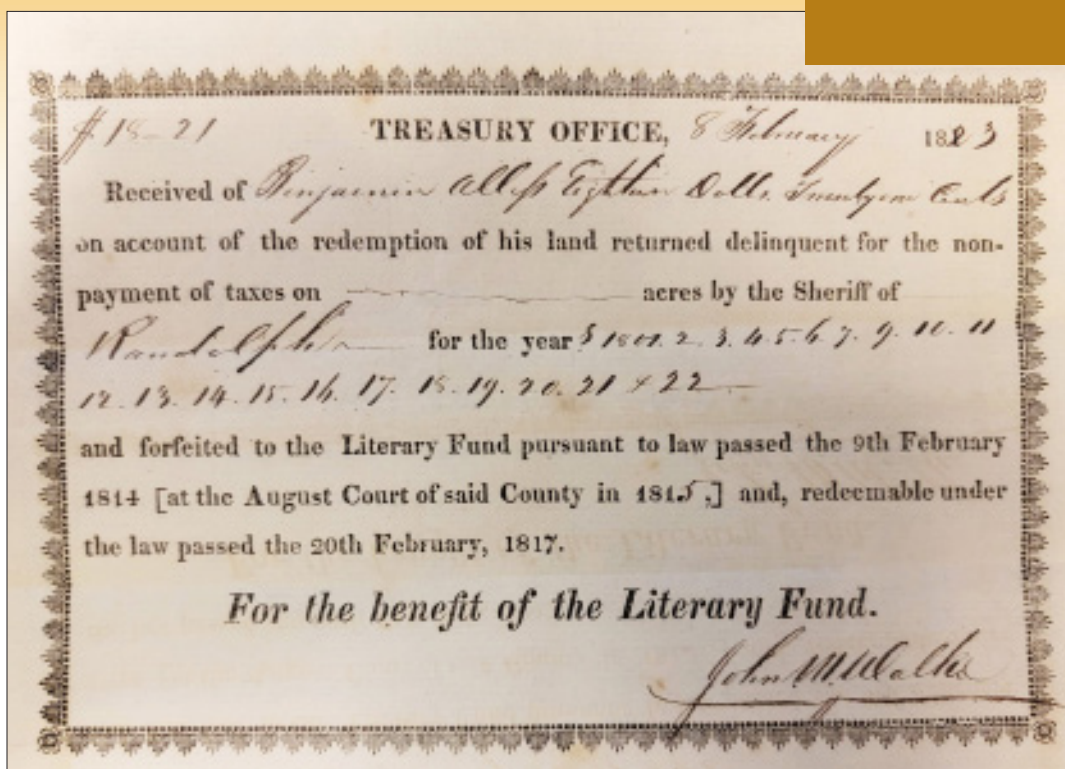 $18-21 TREASURY OFFICE, 8 February 1823
Received of Benjamin Eighteen Dolls. Twenty one Cents
on account of the redemption of his land returned delinquent for the non-
payment of taxes on acres by the Sheriff of
Randolph for the years 1801. 2. 3. 4. 5. 6. 7. 9. 10. 11
12. 13. 14. 15. 16. 17. 18. 19. 20. 21 & 22
and forfeited to the Literary Fund pursuant to law passed the 9th February
1814 [at the August Court of said County in 1815,] and, redeemable under
the law passed the 20th February, 1817.
For the benefit of the Literary Fund.
John M.